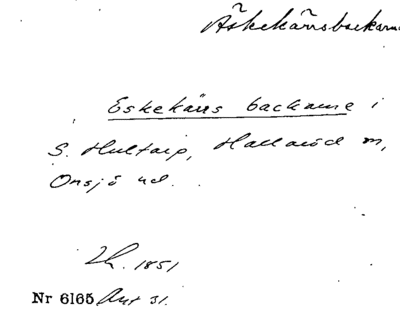 Äskekärrsbackarna
Eskekärrs backarne i
S. Hultarp, Hallaröd m,
Onsjö hd.
1851
Nr 6165 Akt 31.